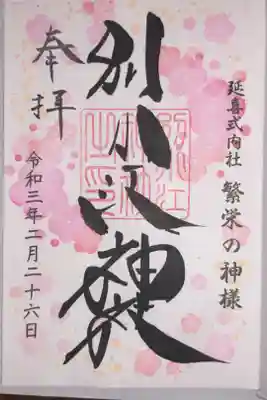 延喜式内社 繁栄の神様
別小江神社
奉拝
令和三年二月二十六日